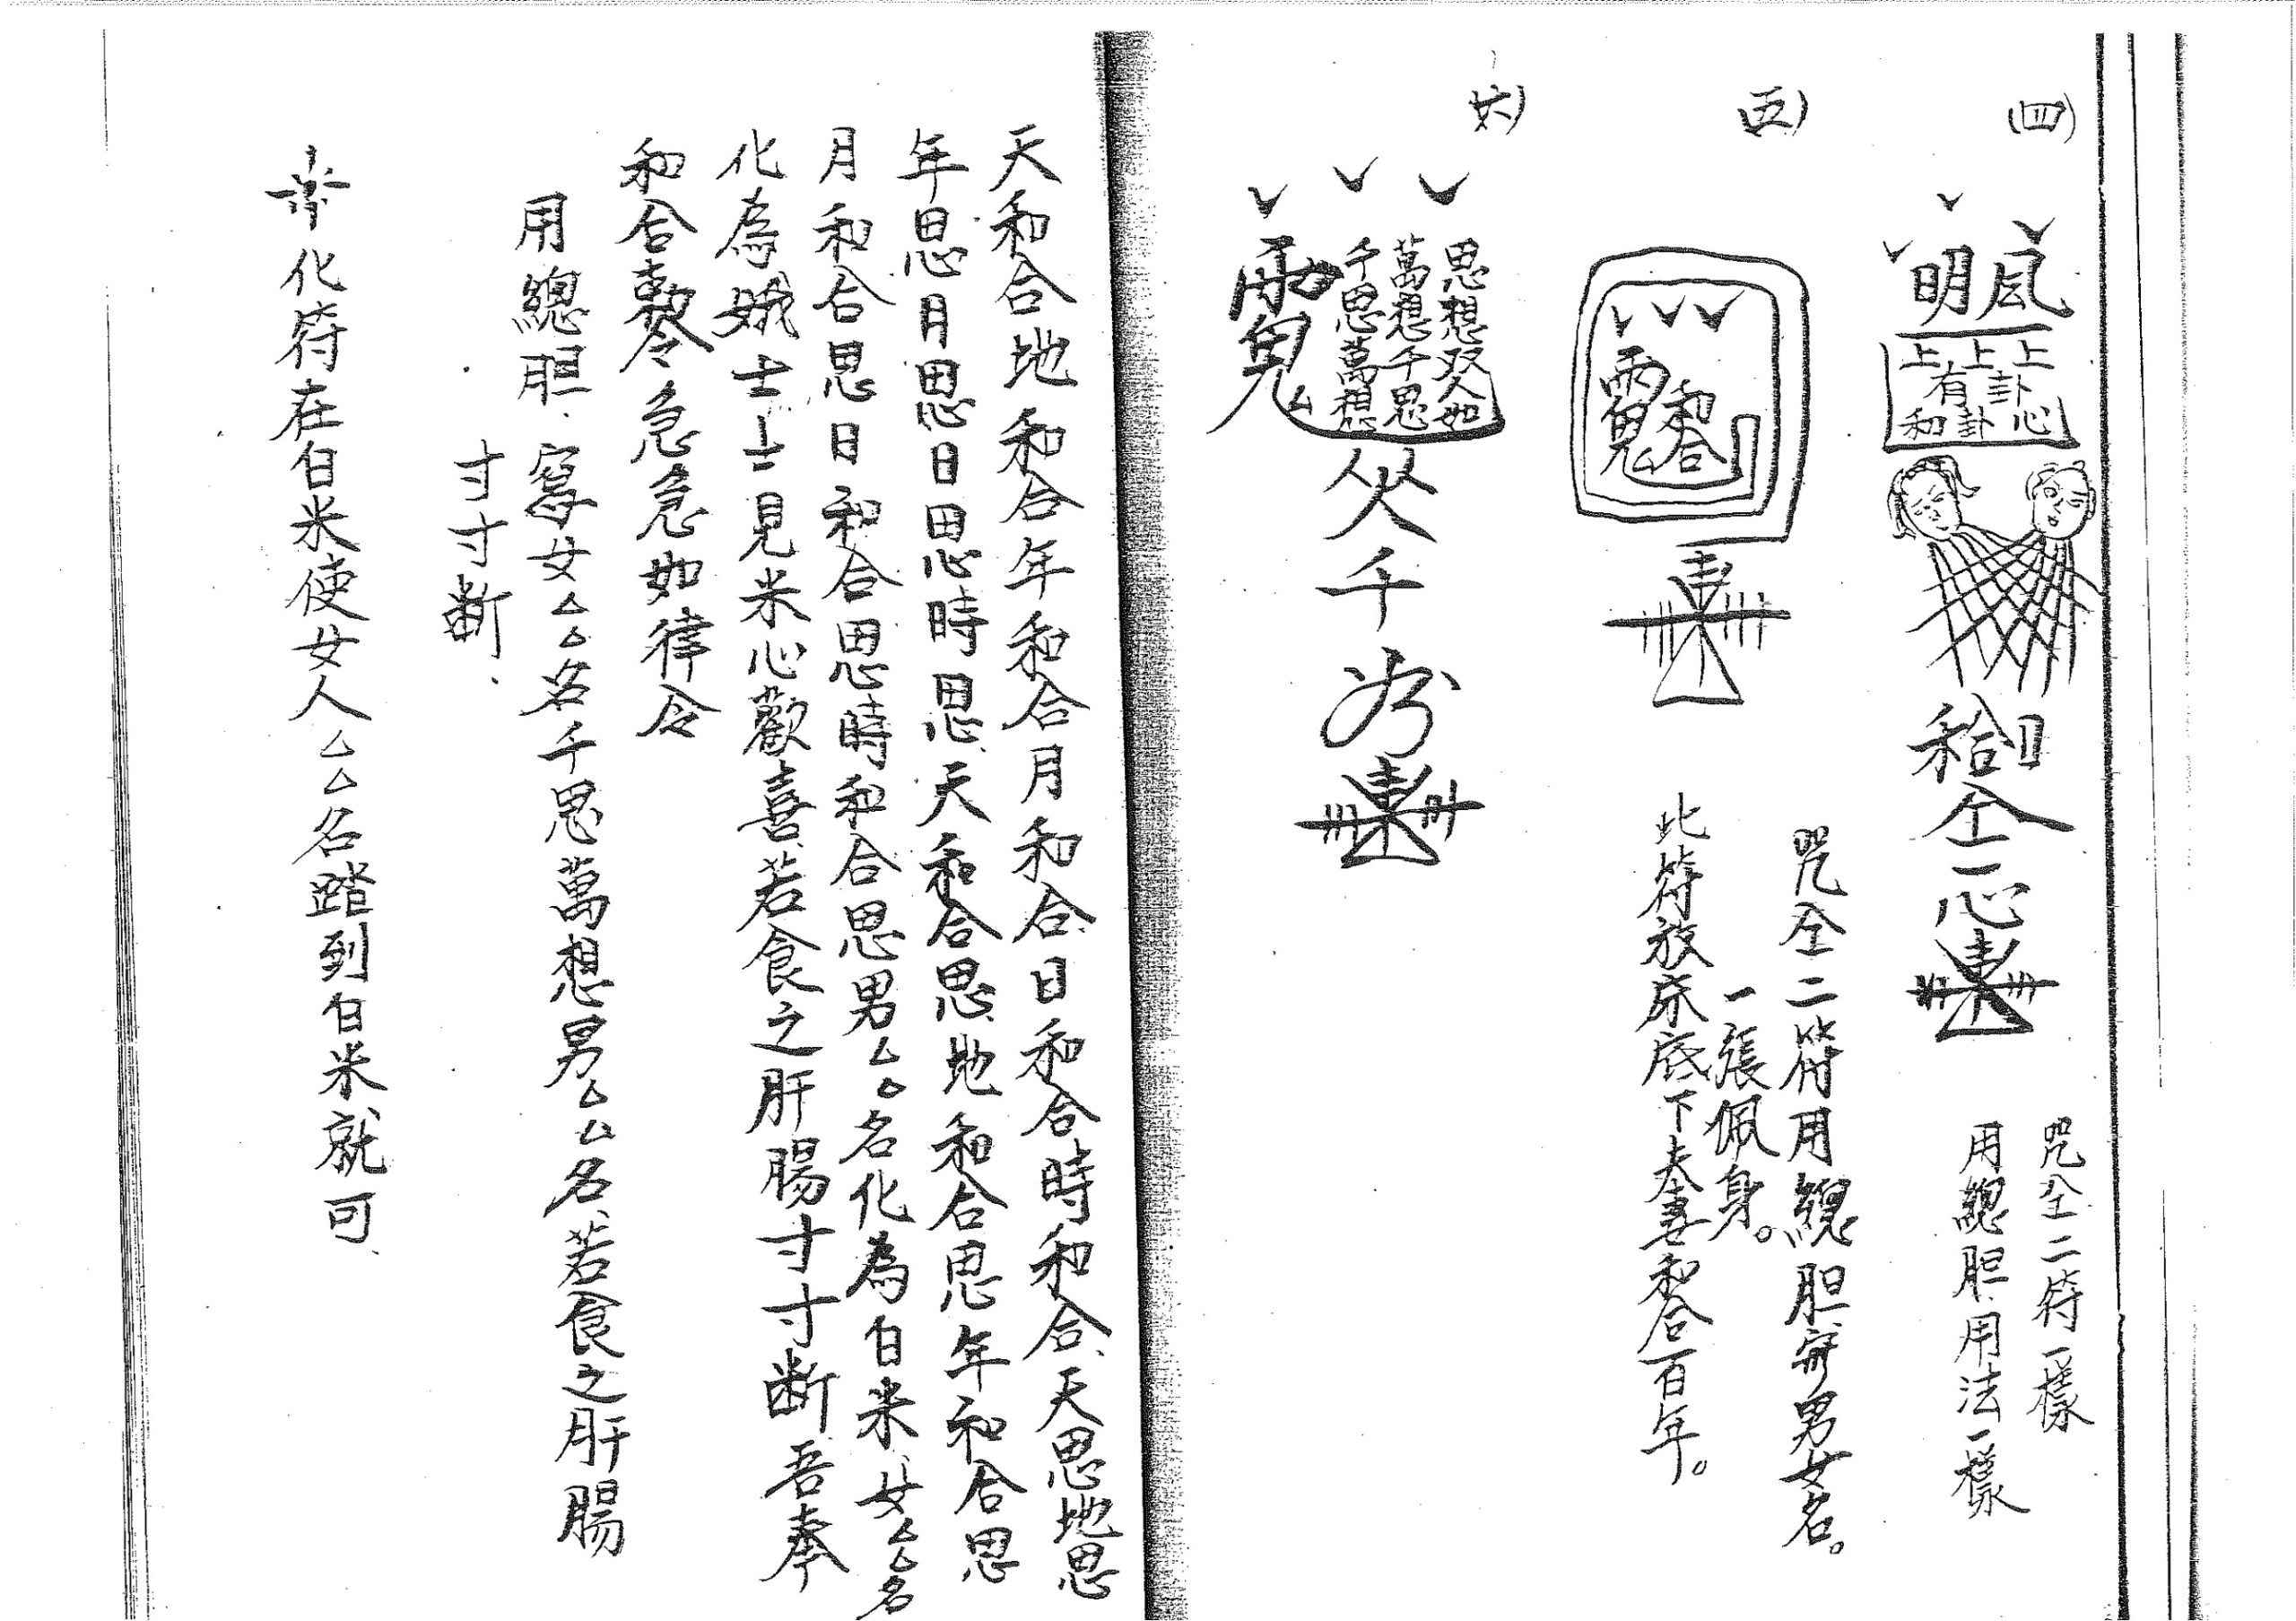 (四)
明
上上上
有卦
和卦心
和合
仝一心
咒仝二符一樣
用總胆用法一樣
(五)
和合
咒仝二符用總胆寫男女名。
一張佩身。
此符放床底下夫妻和合百年。
(六)
思想双人如
萬想千思
千思萬想
千
天和合地和合年和合月和合日和合時和合、天思地思
年思月思日思時思、天和合思地和合思年和合思
月和合思日和合思時和合思男厶厶名化為白米、女厶厶名
化為娥士士見米心歡喜若食之肝腸寸寸断吾奉
和合勅令急急如律令
用總胆、寫女厶厶名千思萬想男厶厶名、若食之肝腸
寸寸断、
化符在白米使女人厶厶名踏到白米就可、